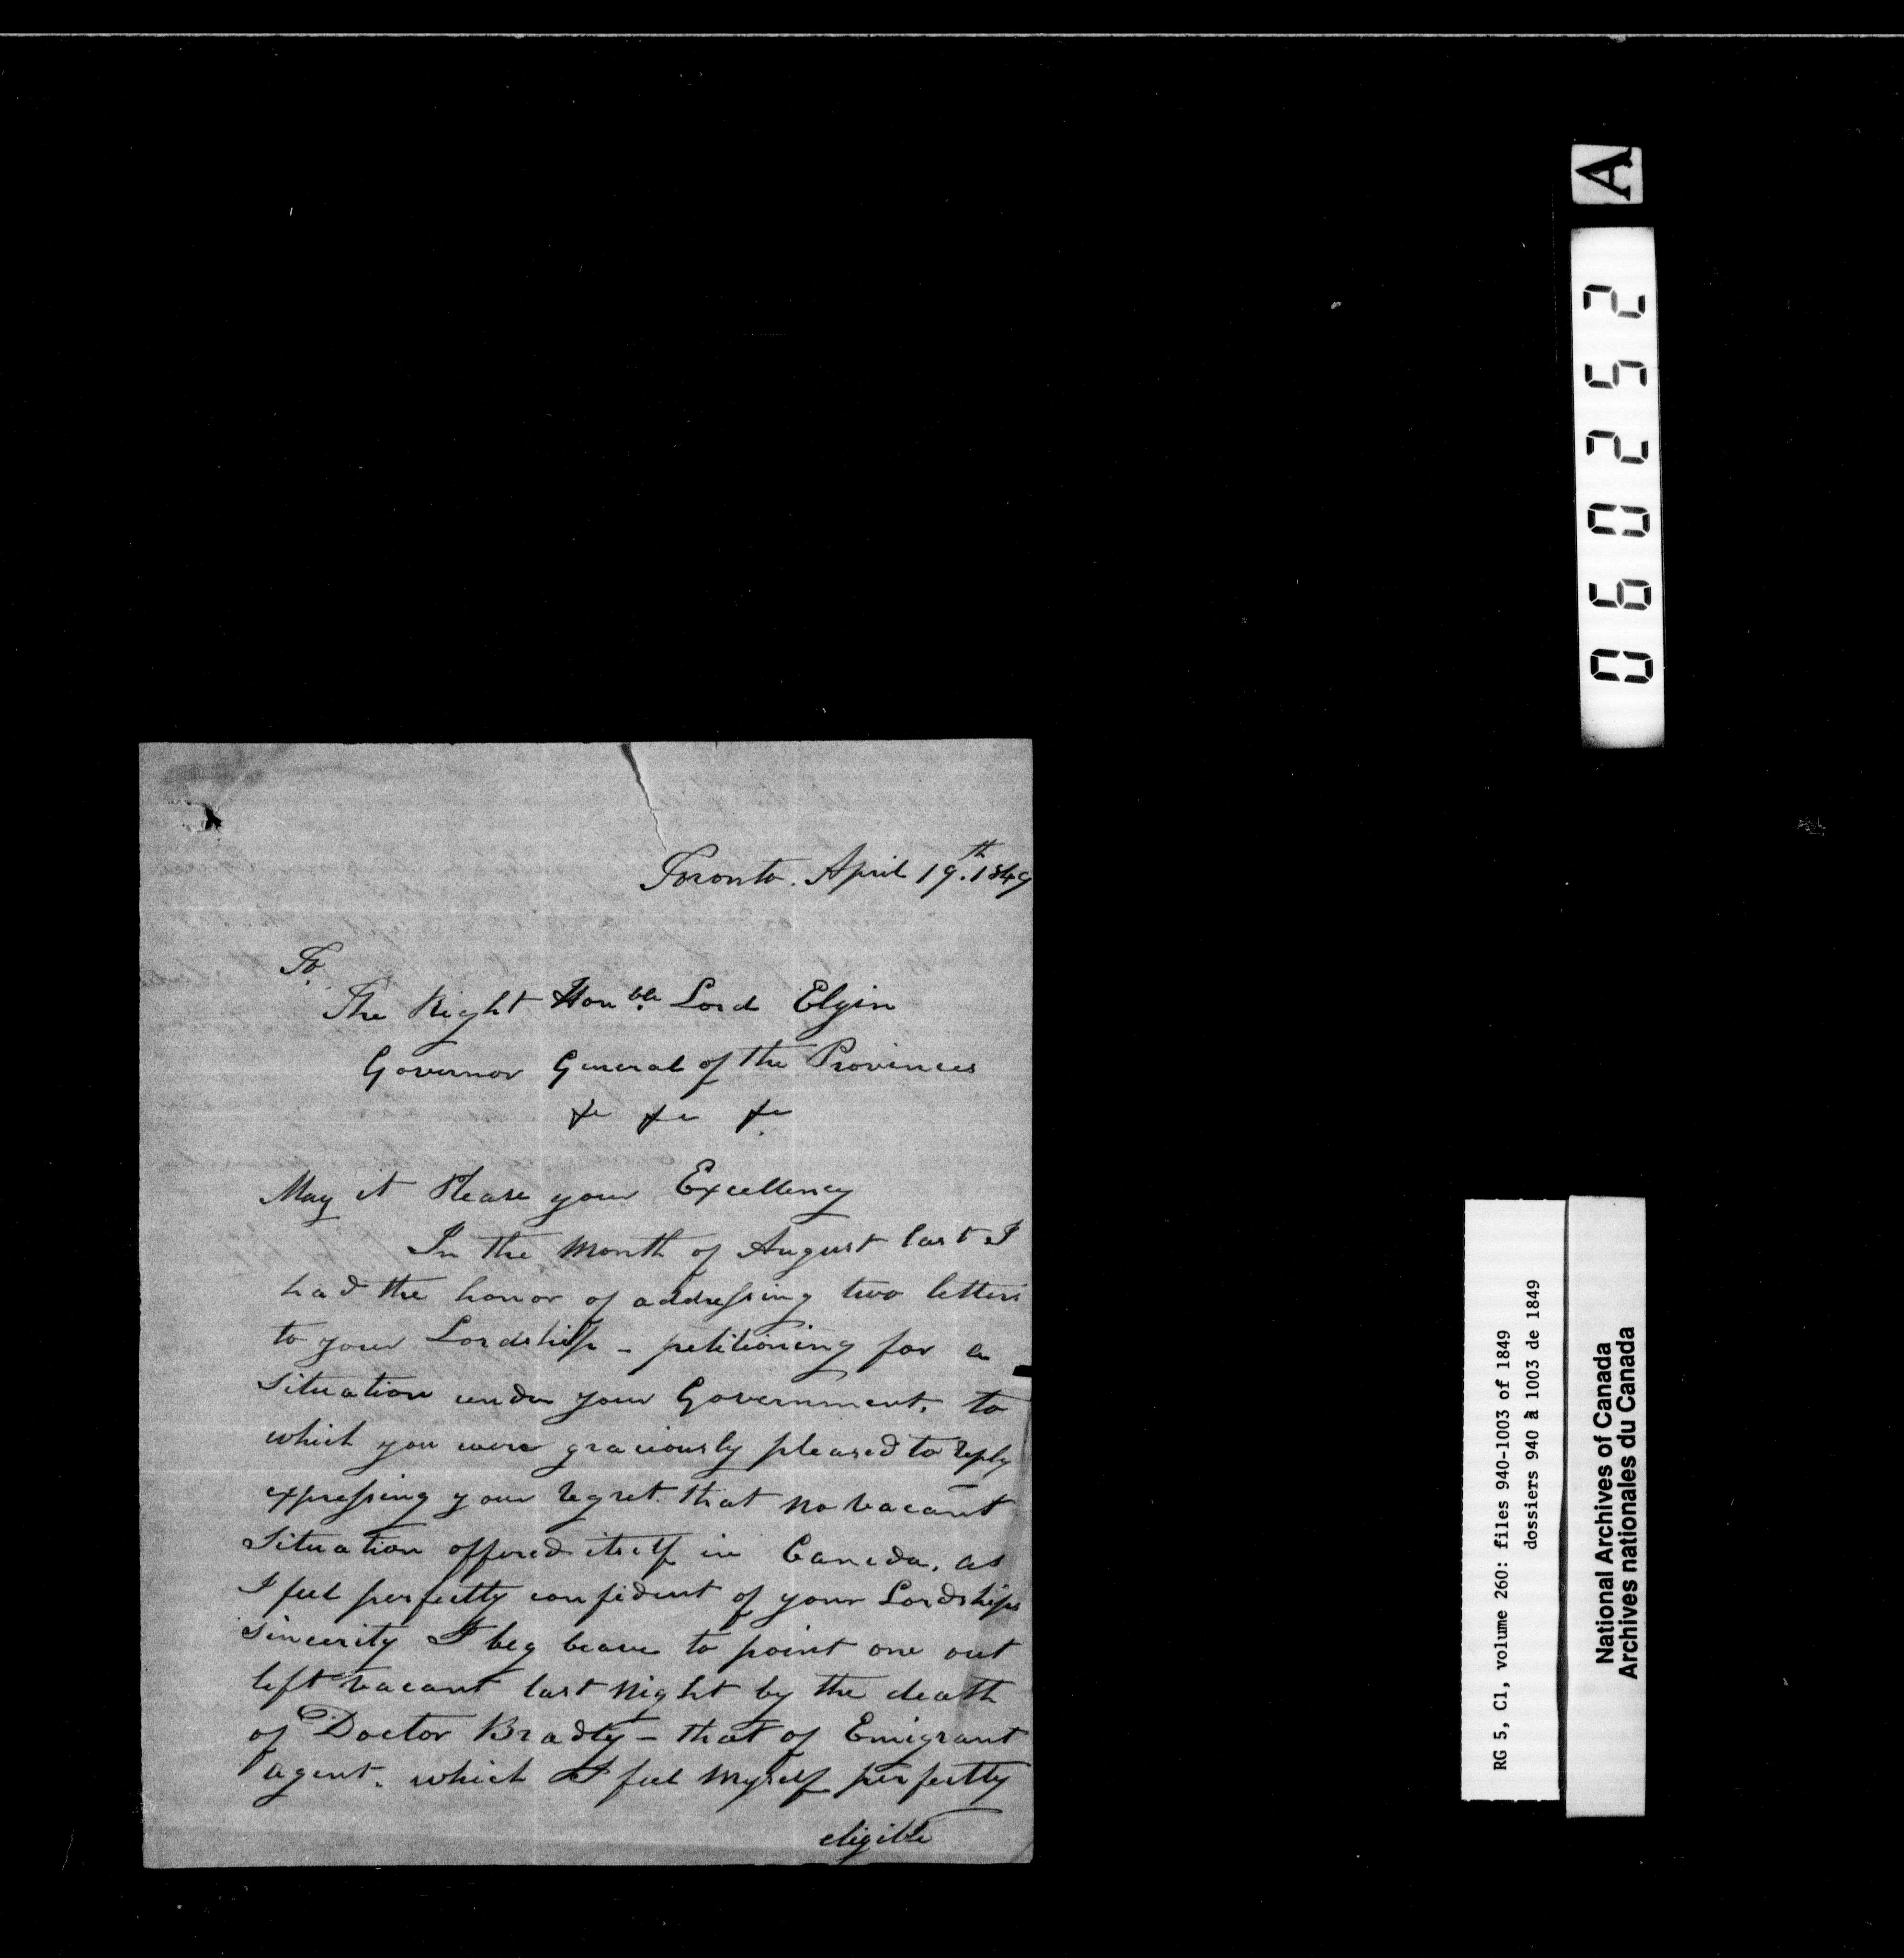 A
060252
Toronto. April 19th. 1849
To
The Right Honble. Lord Elgin
Governor General of the Provinces
&c &c &c
May it Please your Excellency
In the Month of August last I
had the honor of addressing two letters
to your Lordship - petitioning for a
situation under your Government, to
which you were graciously pleased to reply
expressing your regret that no vacant
situation offered itself in Canada, as
I feel perfectly confident of your Lordships
sincerity I beg leave to point one out
left vacant last night by the death
of Doctor Bradly - that of Emigrant
agent. which I feel myself perfectly
eligible
RG 5, C1, volume 260: files 940-1003 of 1849
dossiers 940 à 1003 de 1849
National Archives of Canada
Archives nationales du Canada